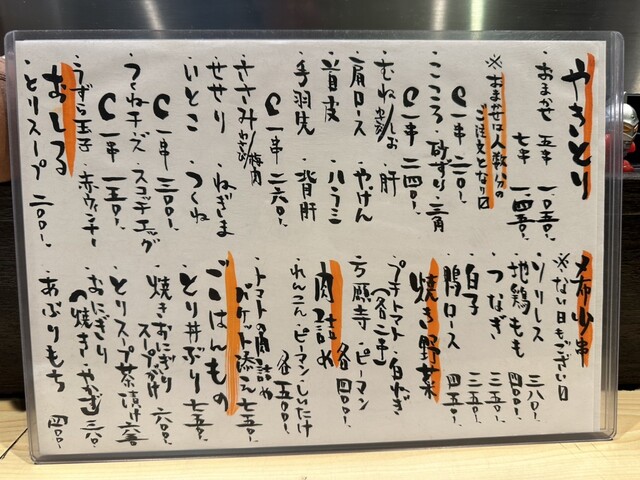 やきとり
・おまかせ 五本 一〇五〇、
七本 一四五〇、
※おまかせは人数分の
ご注文となり〼
一串 二〇〇、
・こころ・砂ずり・三角
一串 二四〇、
・むね/しお ・肝
・肩ロース ・やげん
・首皮 ・ハラミ
・手羽先 ・背肝
一串 二六〇、
・ささみ/わさび/梅肉
・せせり ・ねぎま
・いとこ ・つくね
一串 三〇〇、
・つくねチーズ・スコッチエッグ
一串 一五〇、
・うずら玉子・赤ウィンナー
おしる
・とりスープ 二〇〇、
希少串
※ない日もござい〼
・ソリレス 三八〇、
・地鶏もも
・つなぎ 三五〇、
・白子 三五〇、
・鴨ロース 四五〇、
焼き野菜
・プチトマト・白ねぎ
(各二本)
・万願寺・ピーマン
各四〇〇、
肉詰め
・れんこん・ピーマン・しいたけ
各五〇〇、
・トマトの肉詰め
バケット添え 七五〇、
ごはんもの
・とり丼ぶり 七五〇、
・焼きおにぎり
スープがけ 六〇〇、
・とりスープ茶漬け 六〇〇、
・おにぎり
・あぶりもち 四〇〇、